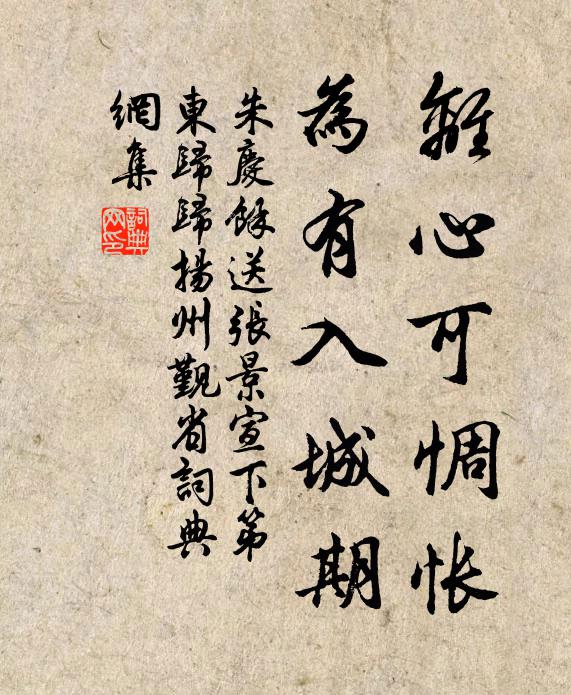 離心可惆怅
為有入城期
朱慶餘送張景宣下第
東歸歸揚州覲省詞典
網集
詞典網印